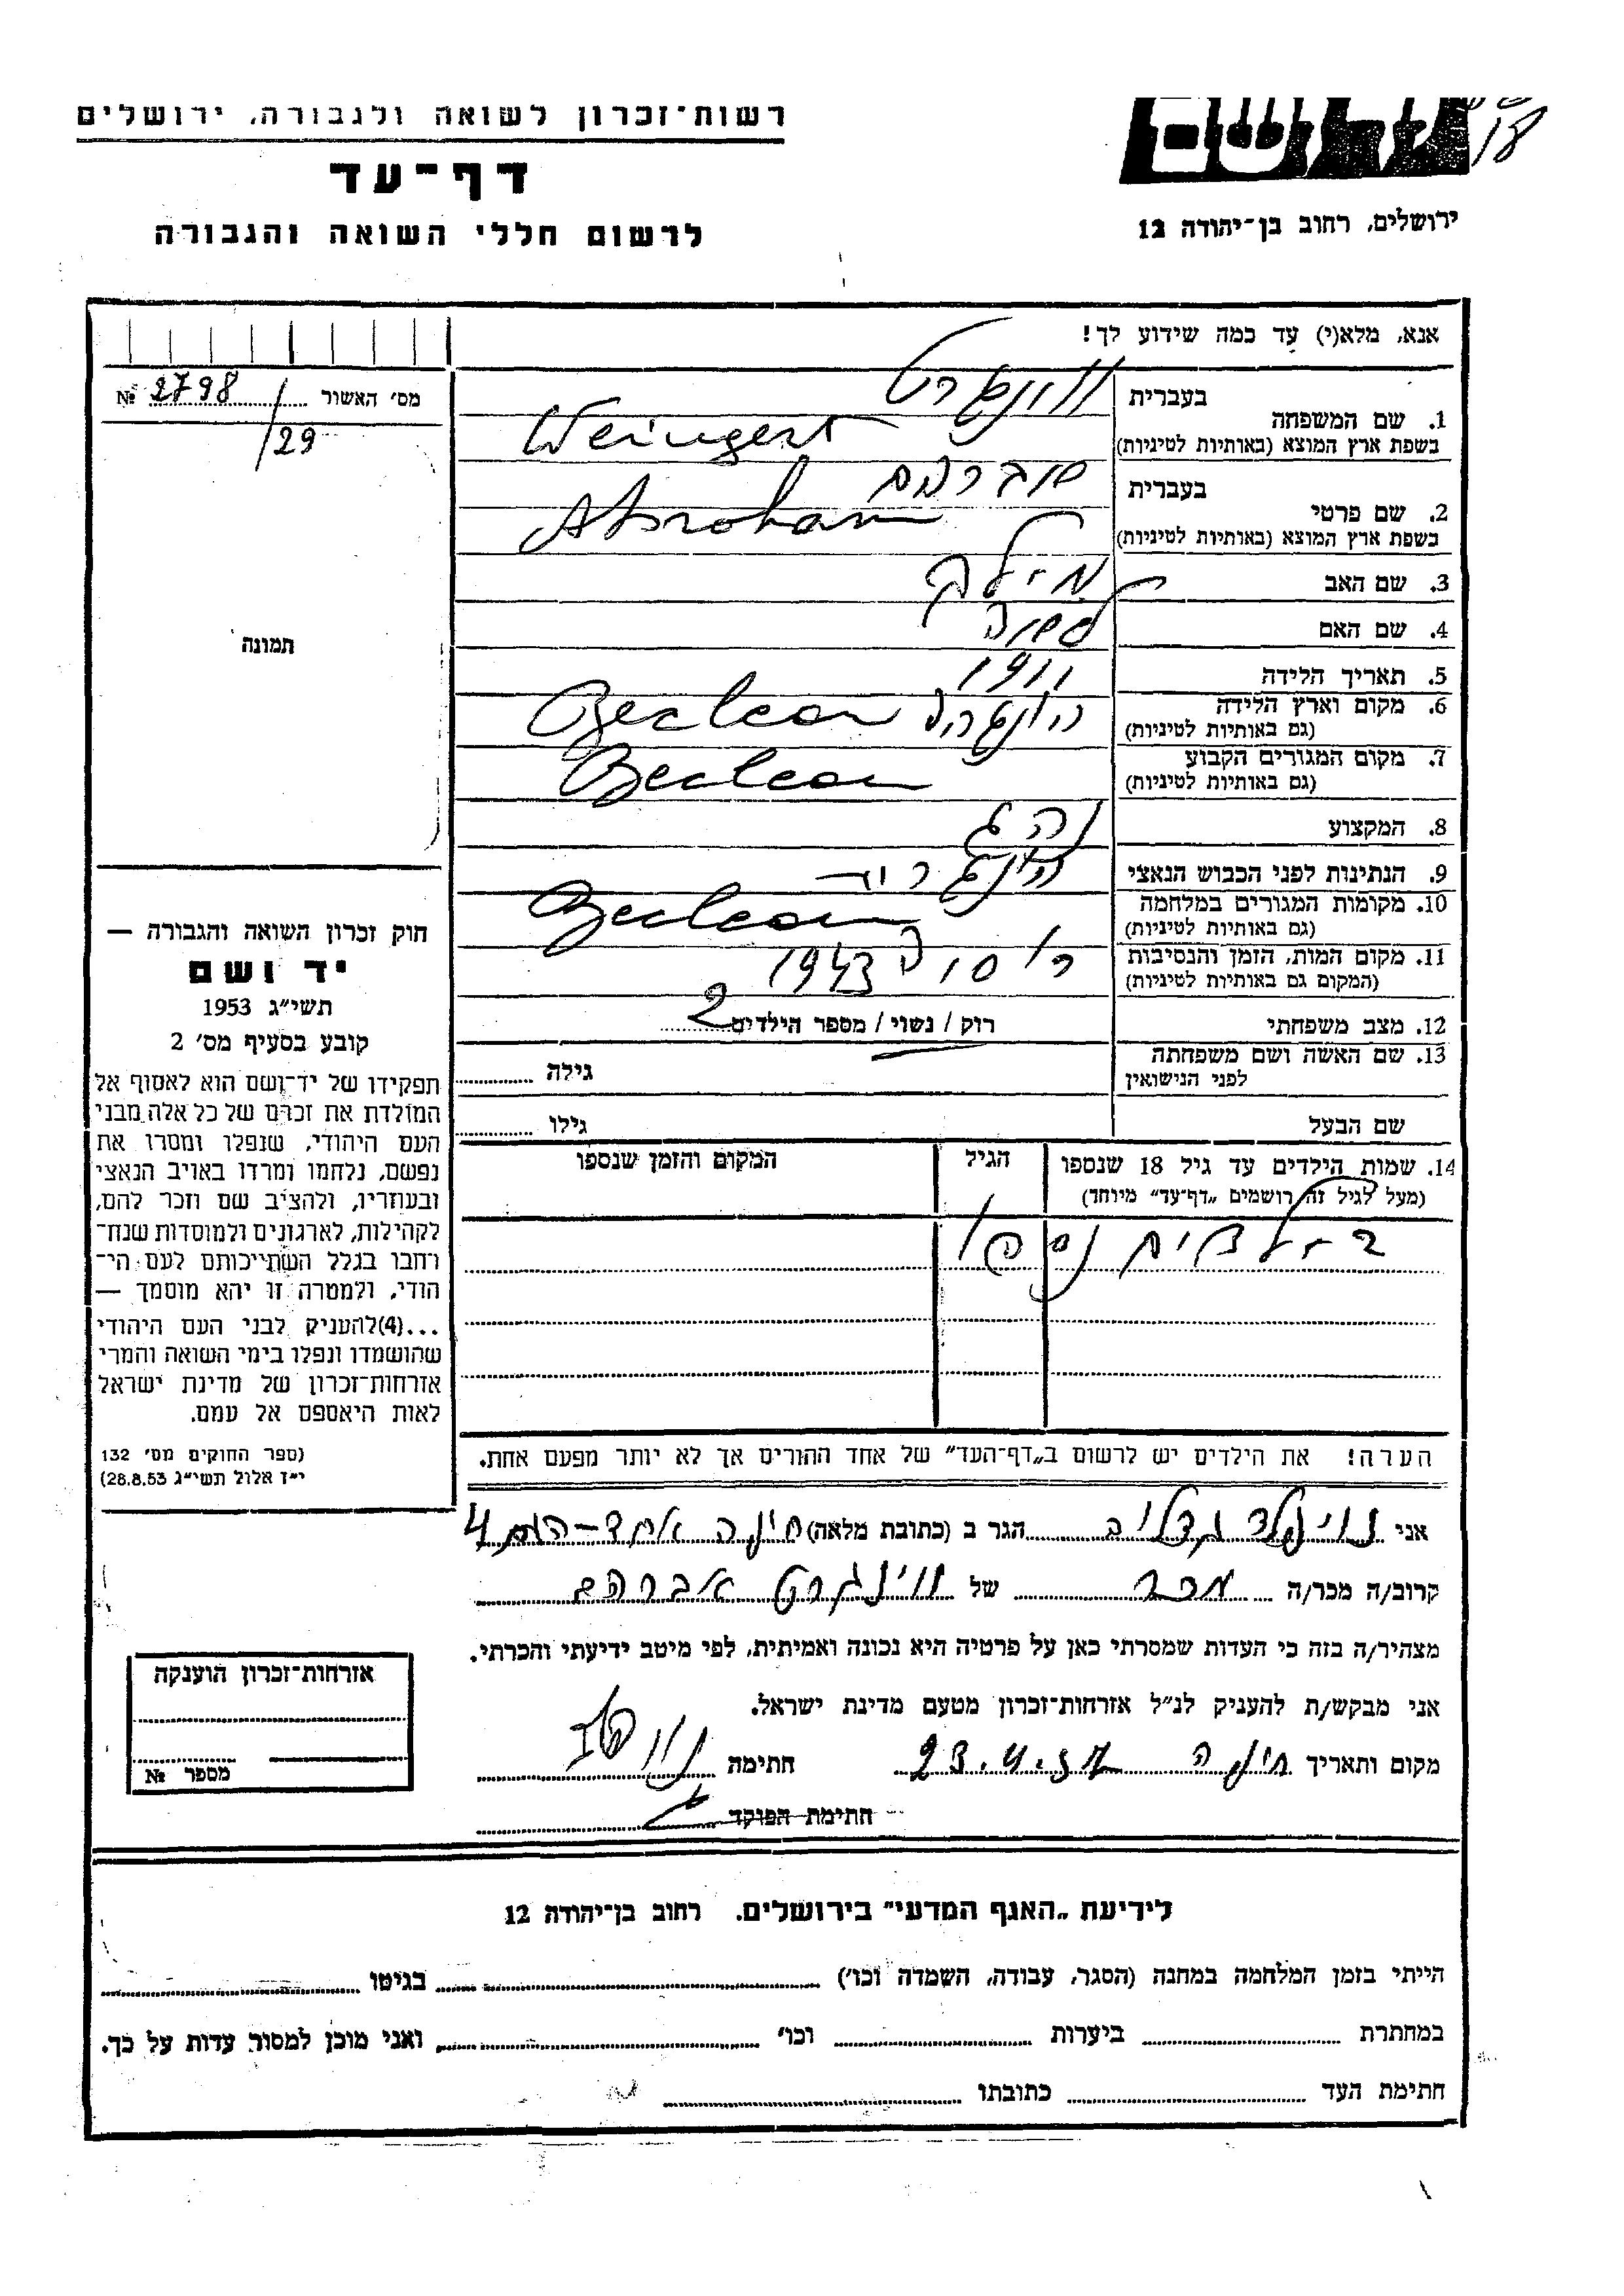 רשות־זכרון לשואה ולגבורה, ירושלים
דף־עד
לרשום חללי השואה והגבורה
ירושלים, רחוב בן־יהודה 12
אנא, מלא(י) עד כמה שידוע לך!
מס׳ האשור 2798 №
/29
1. שם המשפחה
בעברית
בשפת ארץ המוצא (באותיות לטיניות) Weingert
2. שם פרטי
בעברית
בשפת ארץ המוצא (באותיות לטיניות) Abroham
3. שם האב
4. שם האם
5. תאריך הלידה 1911
6. מקום וארץ הלידה
(גם באותיות לטיניות)
7. מקום המגורים הקבוע
(גם באותיות לטיניות)
8. המקצוע
9. הנתינות לפני הכבוש הנאצי
10. מקומות המגורים במלחמה
(גם באותיות לטיניות)
11. מקום המות, הזמן והנסיבות רוסיה 1943
(המקום גם באותיות לטיניות)
12. מצב משפחתי רוק / נשוי / מספר הילדים 2
13. שם האשה ושם משפחתה
לפני הנישואין
גילה
שם הבעל
גילו
14. שמות הילדים עד גיל 18 שנספו
(מעל לגיל זה רושמים „דף־עד״ מיוחד)
הגיל
המקום והזמן שנספו
2 ילדים נספו
הערה! את הילדים יש לרשום ב„דף־העד״ של אחד ההורים אך לא יותר מפעם אחת.
תמונה
חוק זכרון השואה והגבורה —
יד ושם
תשי״ג 1953
קובע בסעיף מס׳ 2
תפקידו של יד־ושם הוא לאסוף אל
המולדת את זכרם של כל אלה מבני
העם היהודי, שנפלו ומסרו את
נפשם, נלחמו ומרדו באויב הנאצי
ובעוזריו, ולהציב שם וזכר להם,
לקהילות, לארגונים ולמוסדות שנח־
רחבו בגלל השתייכותם לעם הי־
הודי, ולמטרה זו יהא מוסמך —
...(4)להעניק לבני העם היהודי
שהושמדו ונפלו בימי השואה והמרי
אזרחות־זכרון של מדינת ישראל
לאות היאספם אל עמם.
(ספר החוקים מס׳ 132
י״ז אלול תשי״ג 28.8.53)
אני הגר ב (כתובת מלאה) חיפה אחד-העם 4
קרוב/ה מכר/ה מכר של ווינגרט אברהם
מצהיר/ה בזה כי העדות שמסרתי כאן על פרטיה היא נכונה ואמיתית, לפי מיטב ידיעתי והכרתי.
אני מבקש/ת להעניק לנ״ל אזרחות־זכרון מטעם מדינת ישראל.
מקום ותאריך חיפה 23.4.57 חתימה
חתימת הפוקד
אזרחות־זכרון הוענקה
מספר №
לידיעת „האגף המדעי״ בירושלים. רחוב בן־יהודה 12
הייתי בזמן המלחמה במחנה (הסגר, עבודה, השמדה וכו׳) בגיטו
במחתרת ביערות וכו׳ ואני מוכן למסור עדות על כך.
חתימת העד כתובתו